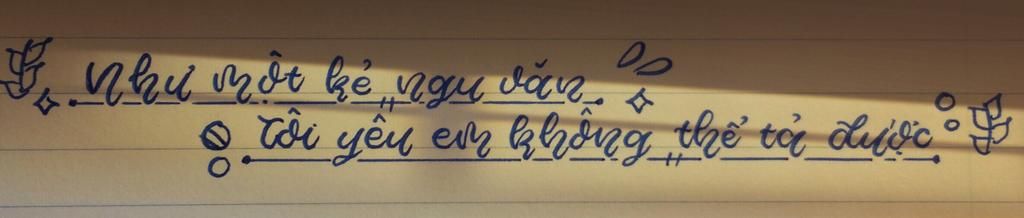 Như một kẻ ngu văn
Tôi yêu em không thể tả được